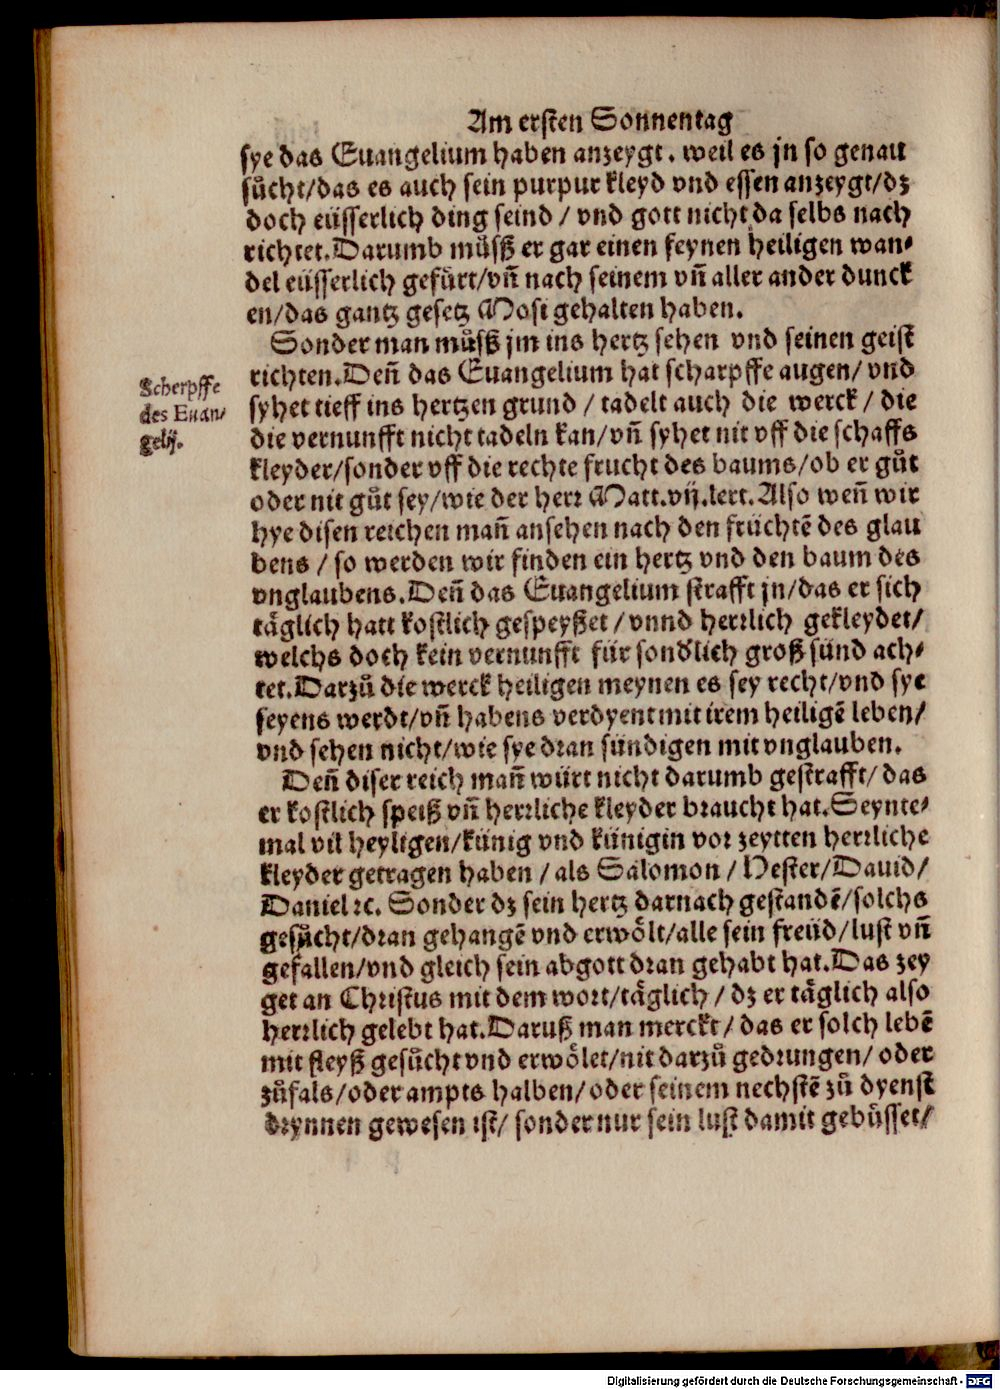 Am ersten Sonnentag
sye das Euangelium haben anzeygt. weil es jn so genau
sůcht/das es auch sein purpur kleyd vnd essen anzeygt/dz
doch eüsserlich ding seind / vnd gott nicht da selbs nach
richtet.Darumb můsß er gar einen feynen heiligen wan⸗
del eüsserlich gefürt/vñ nach seinem vñ aller ander dunck
en/das gantz gesetz Mosi gehalten haben.
Sonder man můsß jm ins hertz sehen vnd seinen geist
richten.Deñ das Euangelium hat scharpffe augen/ vnd
syhet tieff ins hertzen grund / tadelt auch die werck / die
die vernunfft nicht tadeln kan/vñ syhet nit vff die schaffs
kleyder/sonder vff die rechte frucht des baums/ob er gůt
oder nit gůt sey/wie der herr Matt.vij.lert.Also weñ wir
hye disen reichen mañ ansehen nach den früchtē des glau
bens / so werden wir finden ein hertz vnd den baum des
vnglaubens.Deñ das Euangelium strafft jn/das er sich
täglich hatt kostlich gespeyßet / vnnd herrlich gekleydet/
welchs doch kein vernunfft für sond'lich groß sünd ach⸗
tet.Darzů die werck heiligen meynen es sey recht/vnd sye
seyens werdt/vñ habens verdyent mit irem heiligē leben/
vnd sehen nicht/wie sye dran sündigen mit vnglauben.
Deñ diser reich mañ würt nicht darumb gestrafft/ das
er kostlich speiß vñ herrliche kleyder braucht hat.Seynte⸗
mal vil heyligen/künig vnd künigin vor zeytten herrliche
kleyder getragen haben / als Salomon / Hester/Dauid/
Daniel ꝛc. Sonder dz sein hertz darnach gestandē/solchs
gesůcht/dran gehangē vnd erwölt/alle sein freüd/lust vñ
gefallen/vnd gleich sein abgott dran gehabt hat.Das zey
get an Christus mit dem wort/täglich / dz er täglich also
herrlich gelebt hat.Daruß man merckt/ das er solch lebē
mit fleyß gesůcht vnd erwölet/nit darzů gedrungen/ oder
zůfals/oder ampts halben/oder seinem nechstē zů dyenst
drynnen gewesen ist/ sonder nur sein lust damit gebüsset/
Scherpffe
des Euan⸗
gelij.
Digitalisierung gefördert durch die Deutsche Forschungsgemeinschaft - DFG